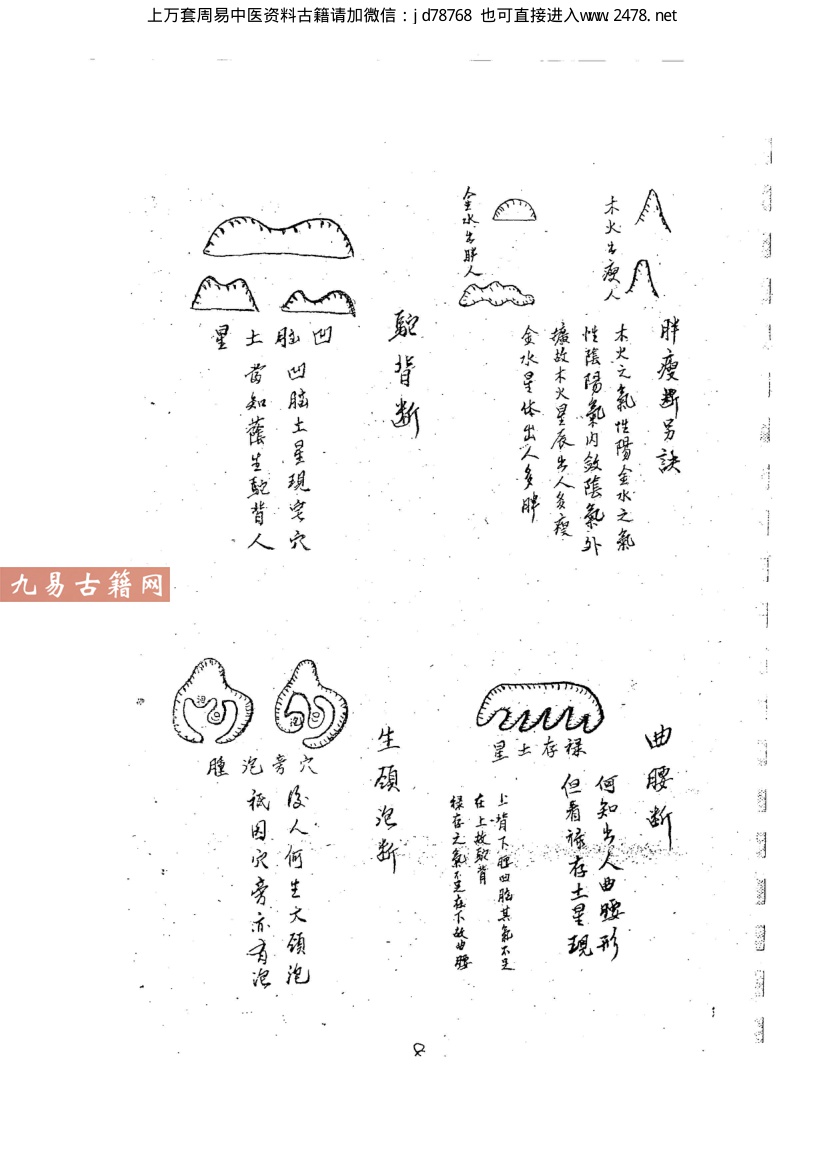 上万套周易中医资料古籍请加微信：jd78768 也可直接进入www.2478.net
木火出瘦人
金水出胖人
胖瘦断另訣
木火之氣性陽金水之氣
性陰陽氣内斂陰氣外
擴故木火星辰出人多瘦
金水星体出人多胖
駝背断
凹脑土星
凹脑土星現宅穴
當知蔭生駝背人
曲腰断
禄存土星
何知出人曲腰形
但看禄存土星現
上背下腰凹脑其氣不足
在上故駝背
禄存之氣不足在下故曲腰
生頸泡断
穴旁泡腫
泡
泡
後人何生大頸泡
祇因穴旁亦有泡
九易古籍网
8